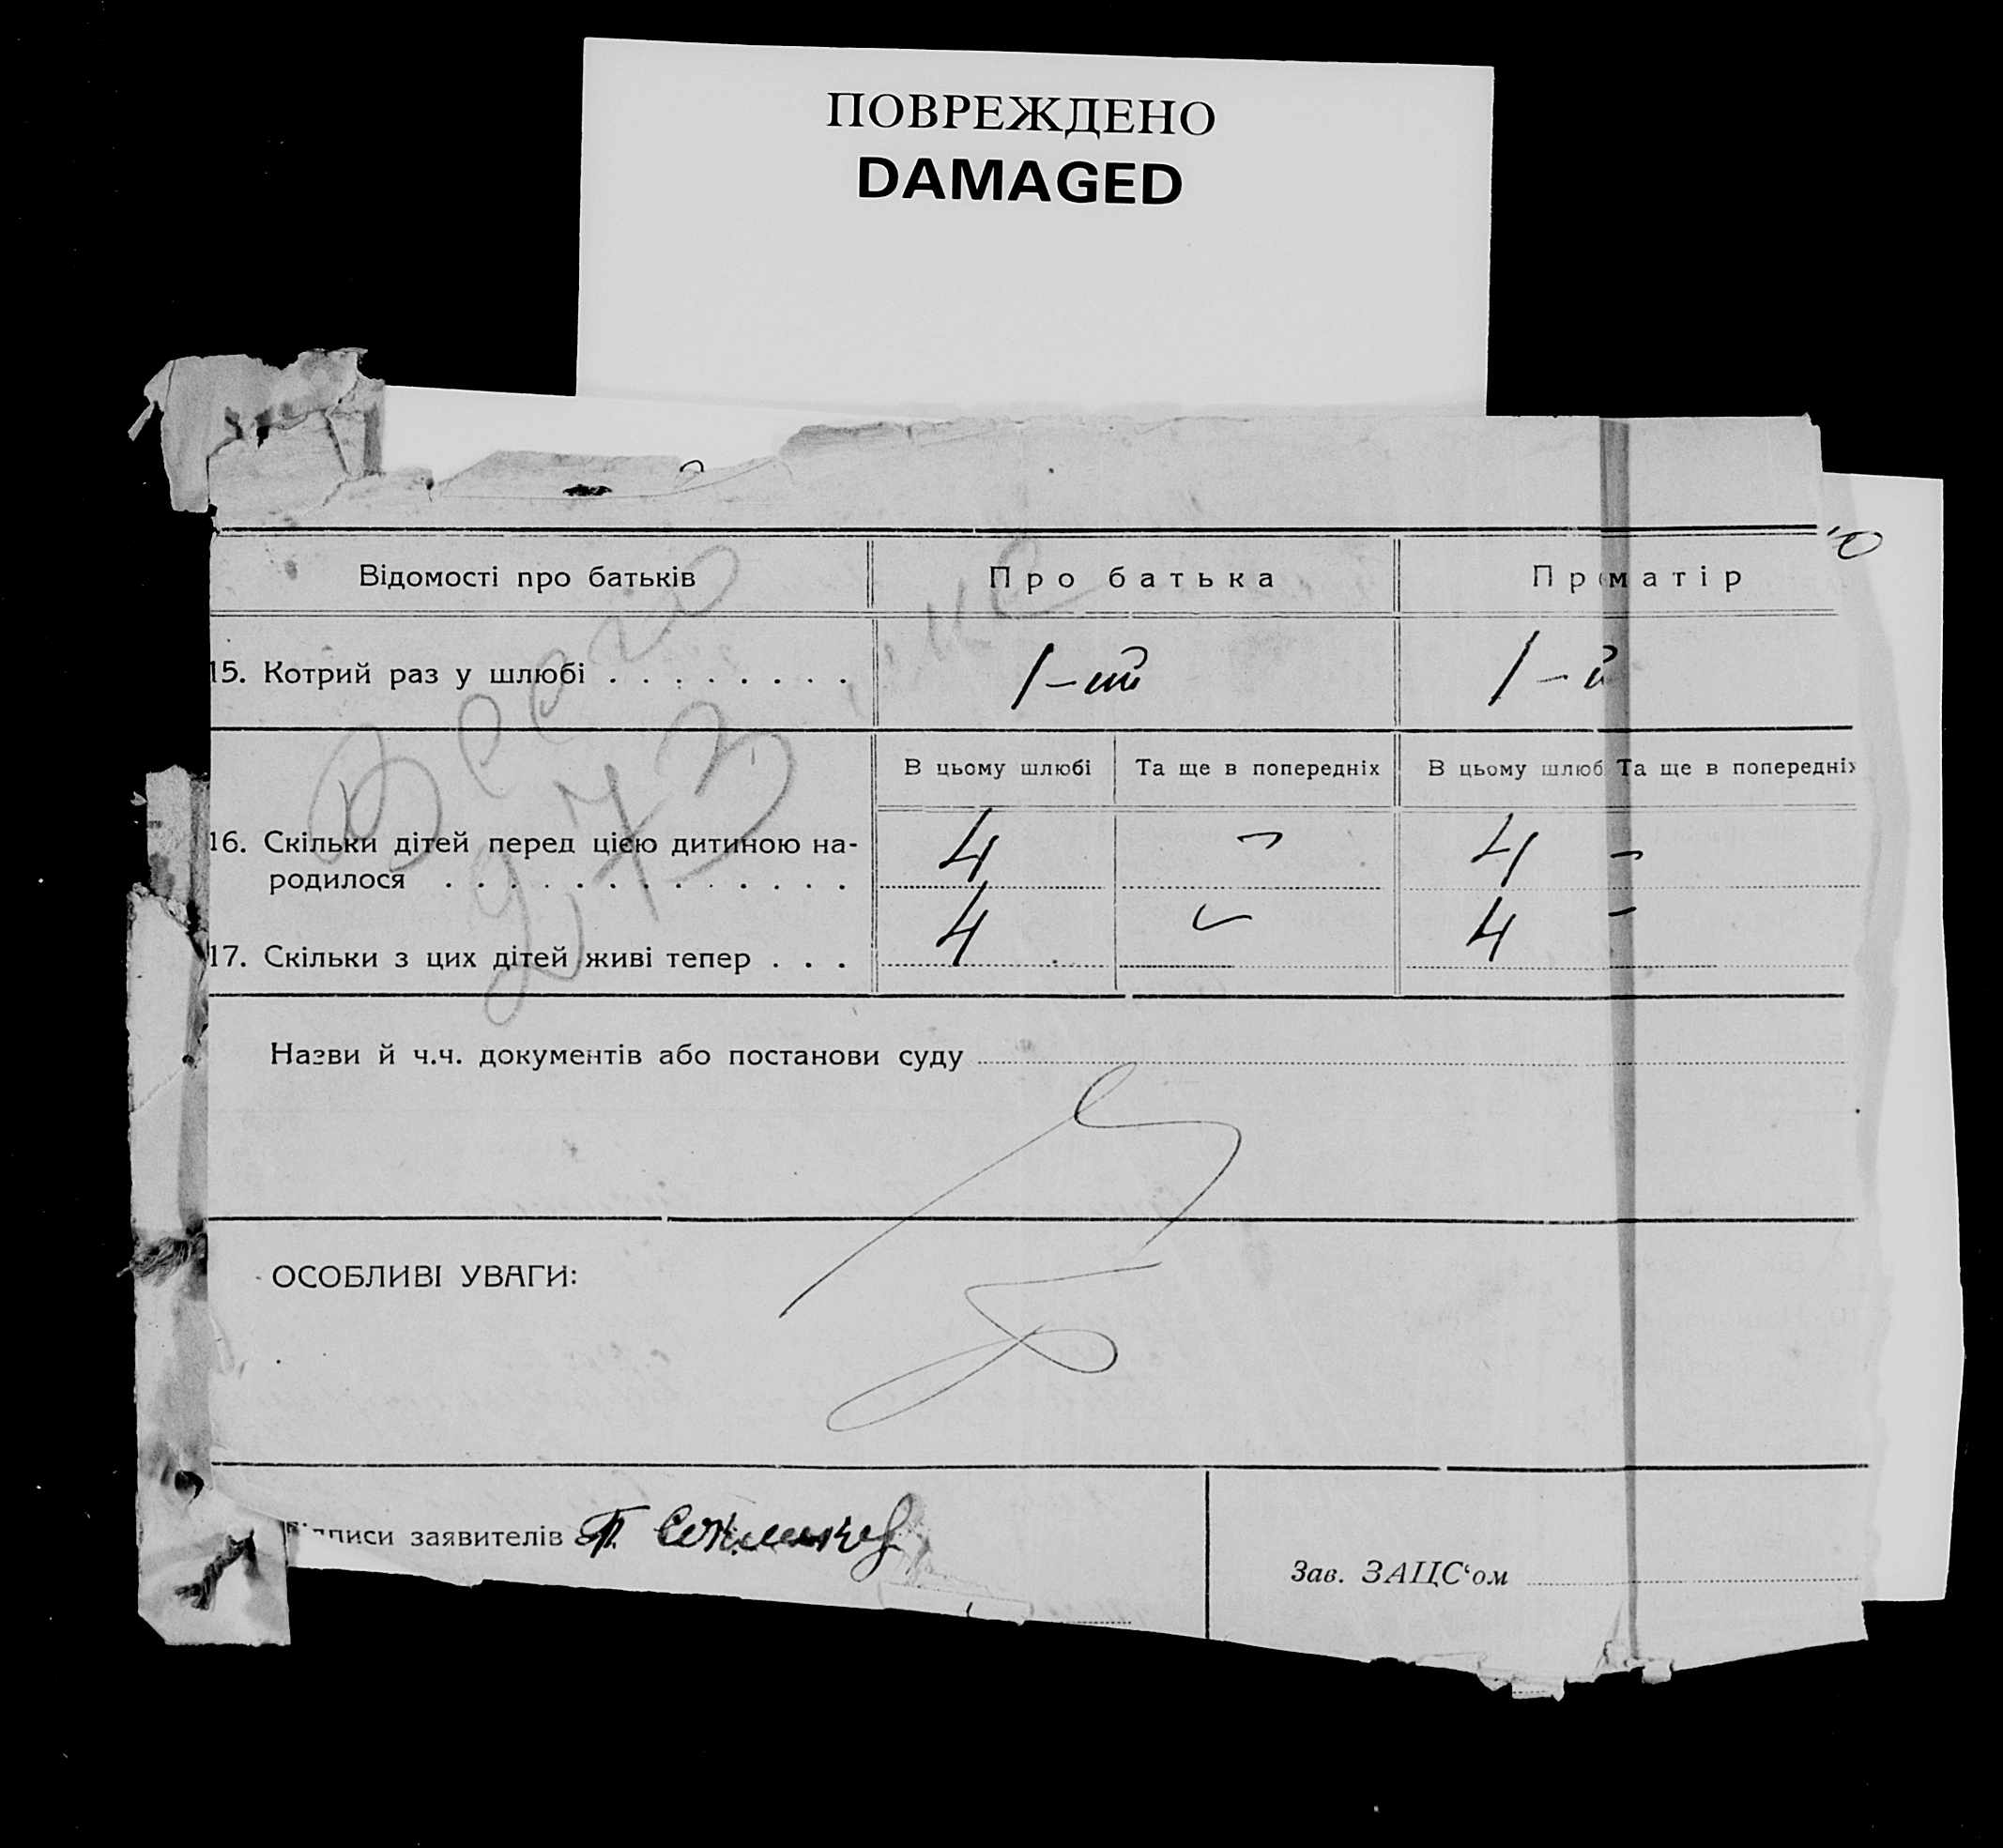 ПОВРЕЖДЕНО
DAMAGED
Відомості про батьків Про батька Пр матір
15. Котрий раз у шлюбі . . . . . . . . 1-ий 1-й
В цьому шлюбі Та ще в попередніх В цьому шлюб Та ще в попередніх
16. Скільки дітей перед цією дитиною на- 4 – 4 –
родилося . . . . . . . . . . . . . .
17. Скільки з цих дітей живі тепер . . . 4 – 4 –
Всего
273
Назви й ч.ч. документів або постанови суду
ОСОБЛИВІ УВАГИ:
писи заявителів П.
Зав. ЗАЦС‘ом